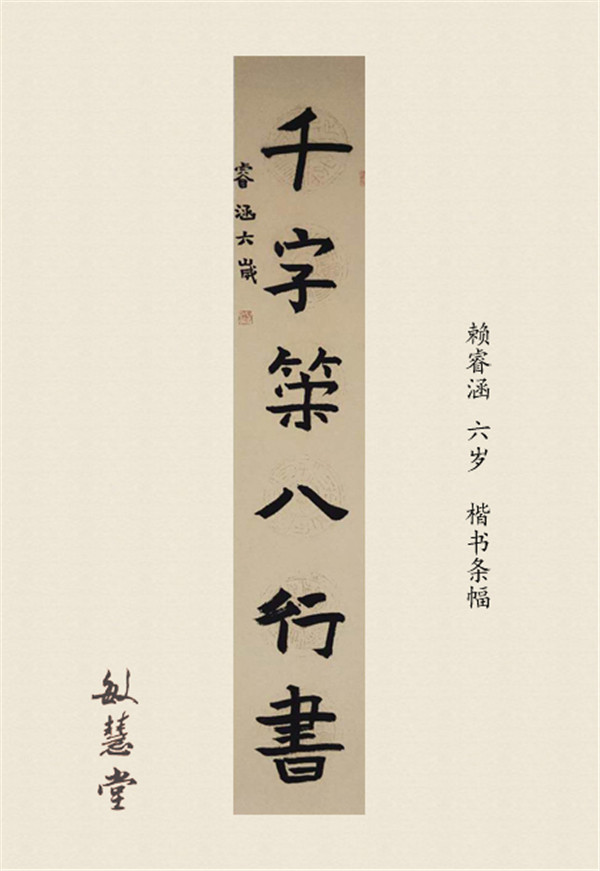 千字策八行書
睿涵六歲
赖睿涵 六岁 楷书条幅
敏慧堂